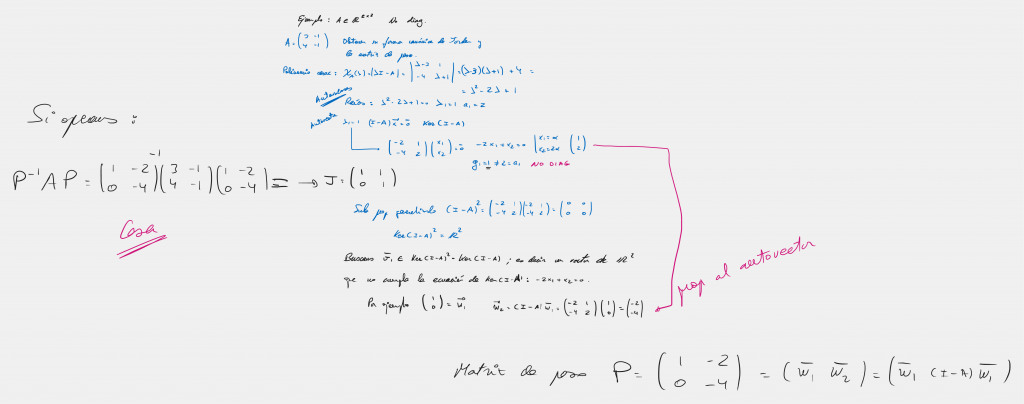 Ejemplo : A ∈ ℝ²ˣ² No diag.
A = (3 -1; 4 -1) Obtener su forma canónica de Jordan y
la matriz de paso.
Polinomio carac : χ_A(λ) = |λI-A| = |λ-3 1; -4 λ+1| = (λ-3)(λ+1) + 4 =
= λ² - 2λ + 1
Autovalores Raíces : λ² - 2λ + 1 = 0 λ₁ = 1 a₁ = 2
λ₁ = 1 (I-A)x̄ = 0̄ Ker(I-A)
(-2 1; -4 2)(x₁; x₂) = 0̄ -2x₁ + x₂ = 0 | x₁ = α x₂ = 2α (1; 2)
g₁ = 1 ≠ 2 = a₁ NO DIAG
Si operamos :
P⁻¹AP = (1 -2; 0 -4)⁻¹ (3 -1; 4 -1)(1 -2; 0 -4) = → J = (1 0; 1 1)
Casa
(I-A)² = (-2 1; -4 2)(-2 1; -4 2) = (0 0; 0 0)
Ker(I-A)² = ℝ²
Buscamos v̄₁ ∈ Ker(I-A)² - Ker(I-A) ; es decir un vector de ℝ²
que no cumpla la ecuación de Ker(I-A) : -2x₁ + x₂ = 0.
Por ejemplo (1; 0) = w̄₁ w̄₂ = (I-A)w̄₁ = (-2 1; -4 2)(1; 0) = (-2; -4)
prop al autovector
Matriz de paso P = (1 -2; 0 -4) = (w̄₁ w̄₂) = (w̄₁ (I-A)w̄₁)